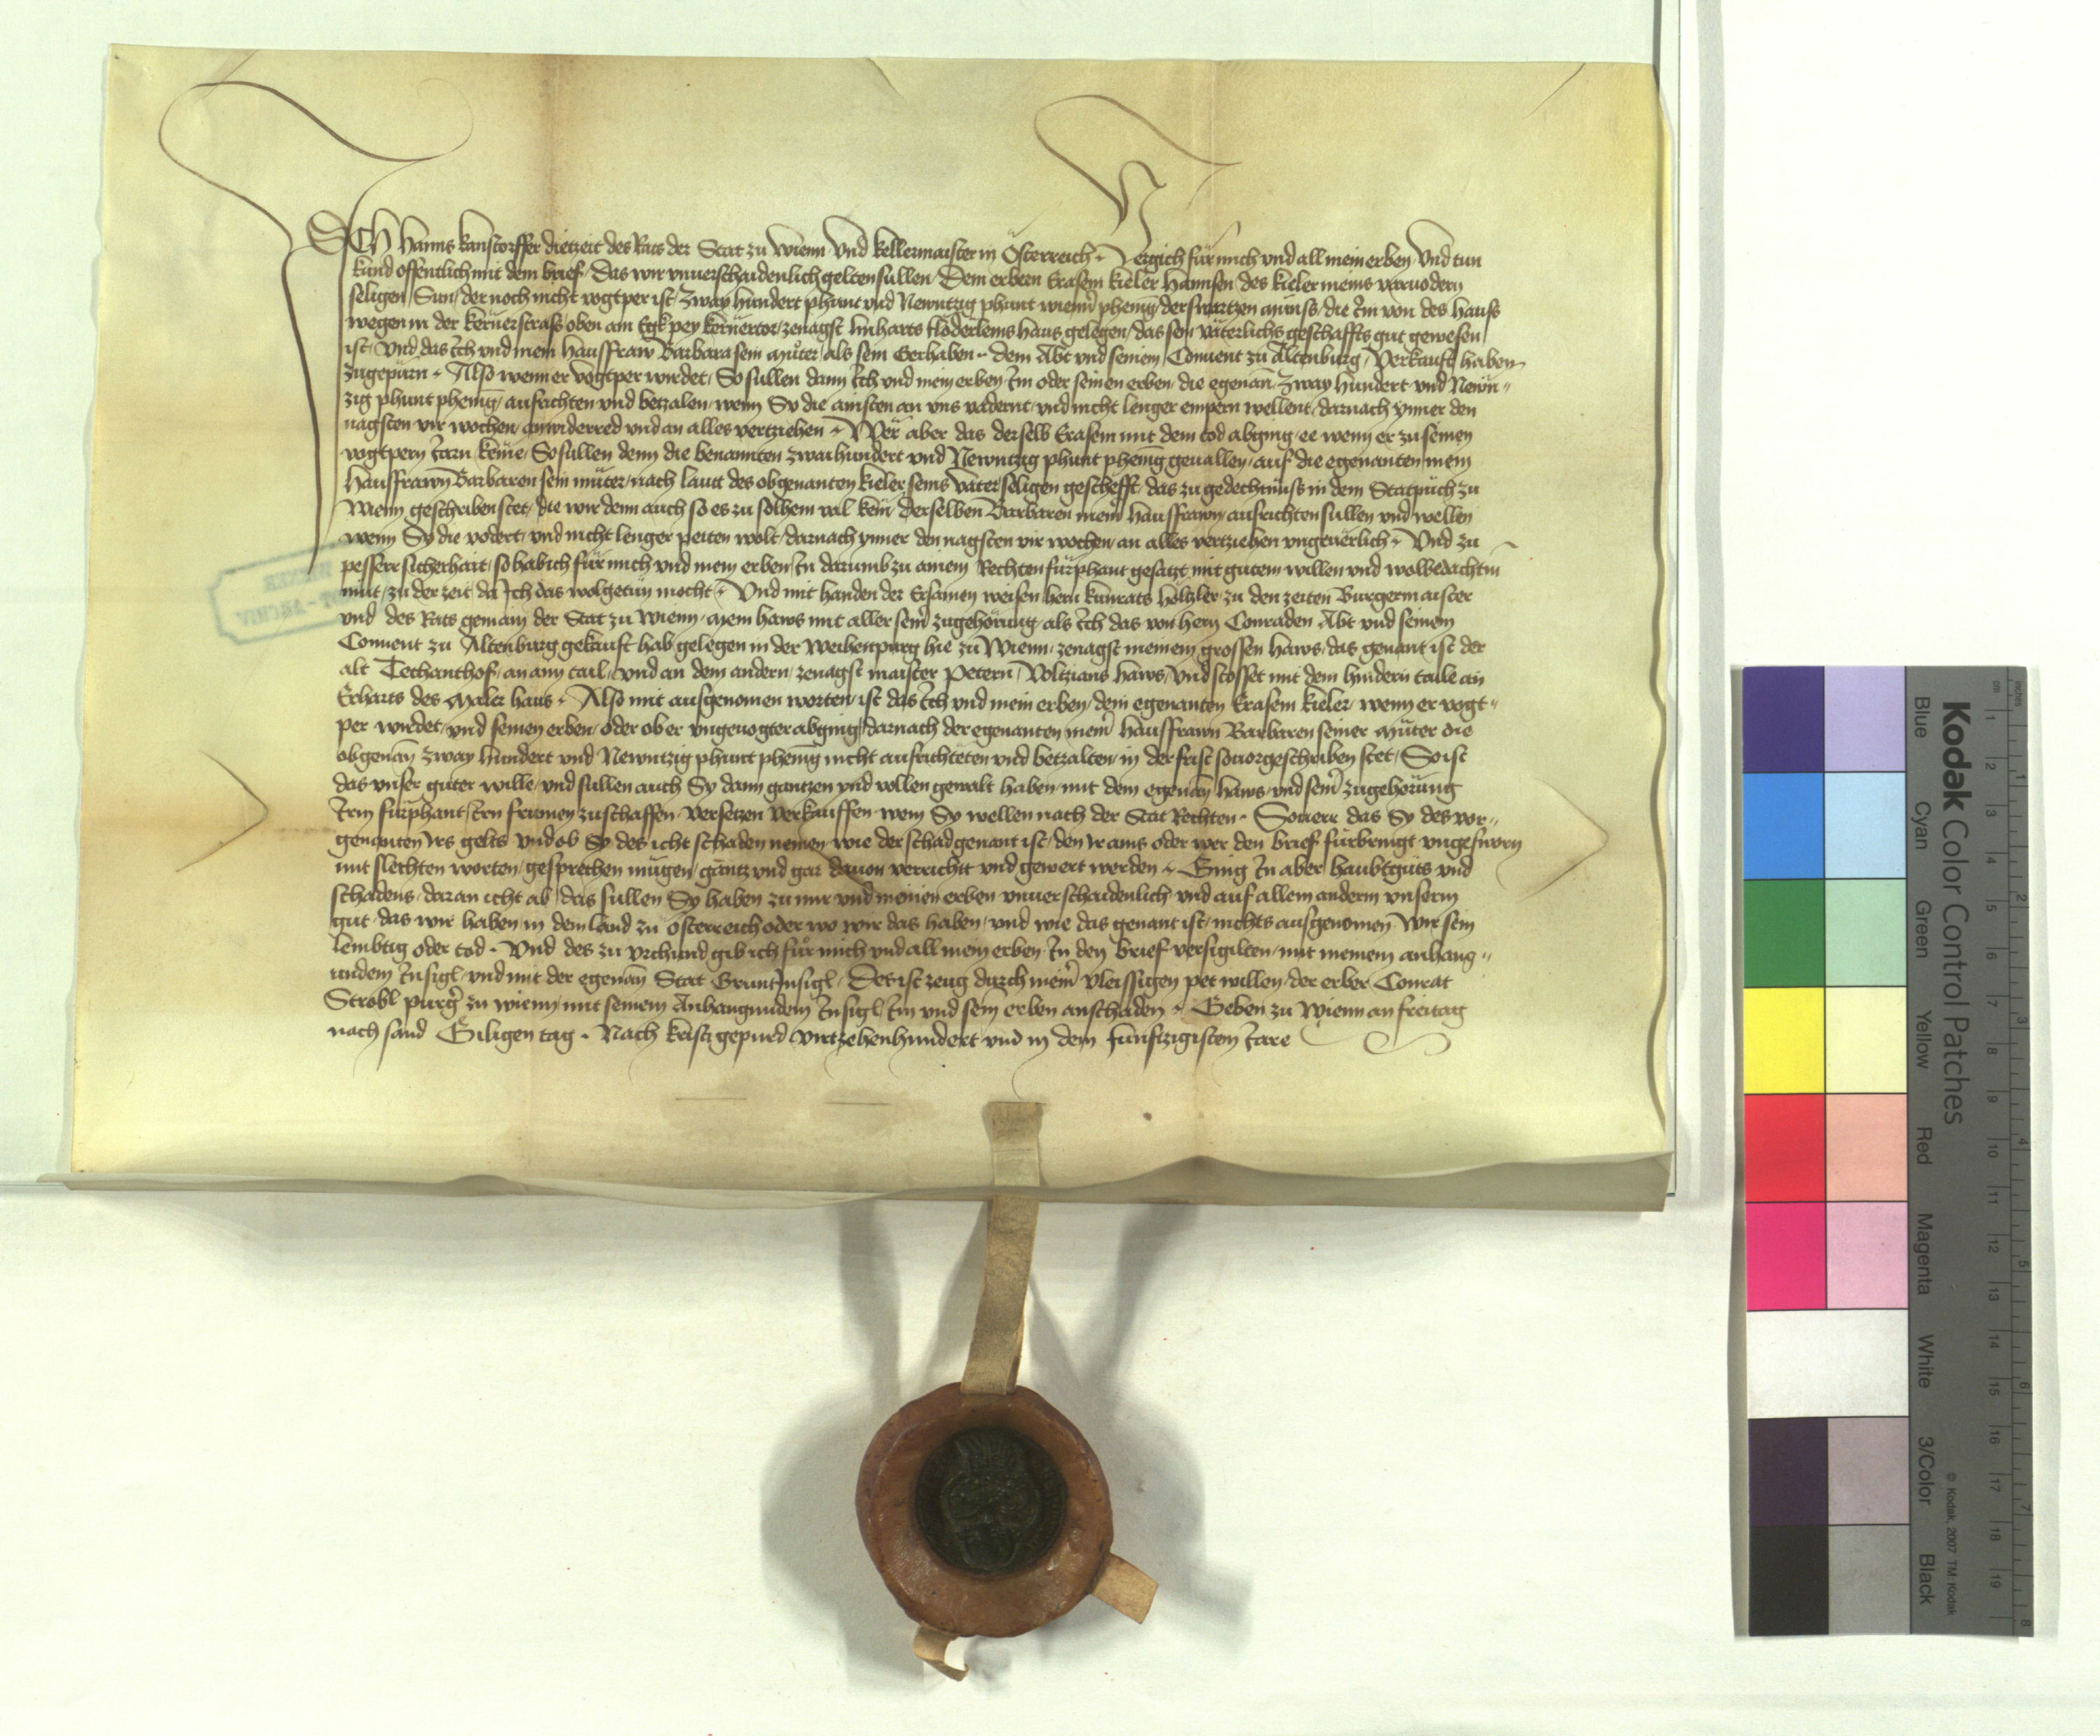 ICH Hanns kanstorffer dietzeit des Rats der Stat zu Wienn und kellermaister in Österreich Vergich für mich und all mein erben Und tun
kund offentlich mit dem brief Das wir unuerschaidenlich gelten sullen Dem erbern Erasem kieler Hannsen des kieler meins vauodern
seligen Sun der noch nicht vogtper ist Zway hundert phunt und Newntzig phunt wienner phenig der swartzen munss die Im von des Hauss
wegen in der kernerstrass oben am Egk pey kernertor zenagst linharts flöderleins haus gelegen das sein väterlichs geschäffts gut gewesen
ist Und das Ich und mein Hausfraw Barbara sein muter als sein Gerhaben dem Abt und seinem Conuent zu Altenburg Verkauft haben
zugepurn Also wenn er vogtper wirdet So sullen dann Ich und mein erben Im oder seinen erben die egenan Zway Hundert und Newn
zig phunt phenig ausrichten und betzalen wenn Sy die ainsten an uns vadernt und nicht lenger empern wellent darnach ynner den
nagsten vir wochen anwiderred und an alles vertziehen Wer aber das derselb Erasem mit dem tod abging ee wenn er zu seinen
vogtpern Iarn keme So sullen denn die benannten zwaihundert und Newntzig phunt phenig geuallen auf die egenanten mein
Hausfrawn Barbaren sein muter nach lautt des obgenanten kieler seins vater seligen geschefft das zu gedechtnuss in dem Statpuch zu
Wienn geschriben stet die wir denn auch so es zu solhem val kem derselben Barbaren meiner hausfrawn ausrichten sullen und wellen
wenn Sy die vodert und nicht lenger peiten wolt darnach ynner den nagsten vir wochen an alles vertziehen ungeuerlich Und zu
pesserr sicherhait so hab ich für mich und mein erben In darumb zu ainem Rechten fürphant gesatzt mit gutem willen und wolbedachtm
mut zu der zeit da Ich das wolgetun mocht Und mit handen der Ersamen weisen hern kunrats Holtzler zu den zeiten Burgermaister
und des Rats gemain der Stat zu Wienn mein haws mit aller seiner zugehörung als Ich das von hern Conraden Abt und seinem
Conuent zu Altenburg gekauft hab gelegen in der Weihenpurg hie zu Wienn zenagst meinem grossen haws das genant ist der
alt Techanthof an aim tail und an dem andern zenagst maister Petern Voltzians haws Und stosset mit dem hindern taile an
Erharts des maler haus Also mit ausgenomen worten ist das Ich und mein erben dem egenanten Erasem kieler wenn er vogt
per wirdet und seinen erben oder ob er ungeuogter abging darnach der egenanten meiner hausfrawn Barbaren seiner muter die
obgenan zway hundert und Newntzig phunt phenig nicht ausrichteten und betzalten in der frist so uorgeschriben stet So ist
das unser guter wille und sullen auch Sy dann gantzen und vollen gewalt haben mit dem egenan haws und seiner zugehörung
Irm fürphant Irn frumen zuschaffen versetzen verkauffen wem Sy wellen nach der Stat Rechten Souerr das Sy des vor
genanten Irs gelts und ob Sy des icht schaden nemen wie der schad genant ist den Ir ains oder wer den brief fürbringt ungesworn
mit slechten worten gesprechen mügen gantz und gar dauon verrichtt und gewert werden Ging In aber haubtguts und
schadens daran icht ab das sullen Sy haben zu mir und meinen erben unuerschaidenlich und auf allem anderm unserm
gut das wir haben in dem Land zu Österreich oder wo wir das haben und wie das genant ist nichts ausgenomen Wir sein
lembtig oder tod Und des zu urchund gib ich für mich und all mein erben In den brief versigilten mit meinem anhang
undem Insigl und mit der egenan Stat GruntInsigl Des ist zeug durch meiner vleissigen pet willen der erber Conrat
Strobl purger zu Wienn mit seinem Anhangundem Insigl Im und sein erben anschaden Geben zu Wienn an freitag
nach sand Giligen tag Nach kristi gepurd virtzehenhundert und in dem funfzigistem Iare
Kodak Color Control Patches
Blue Cyan Green Yellow Red Magenta White 3/Color Black
© Kodak, 2007 TM: Kodak
cm 1 2 3 4 5 6 7 8 9 10 11 12 13 14 15 16 17 18 19
inches 1 2 3 4 5 6 7 8